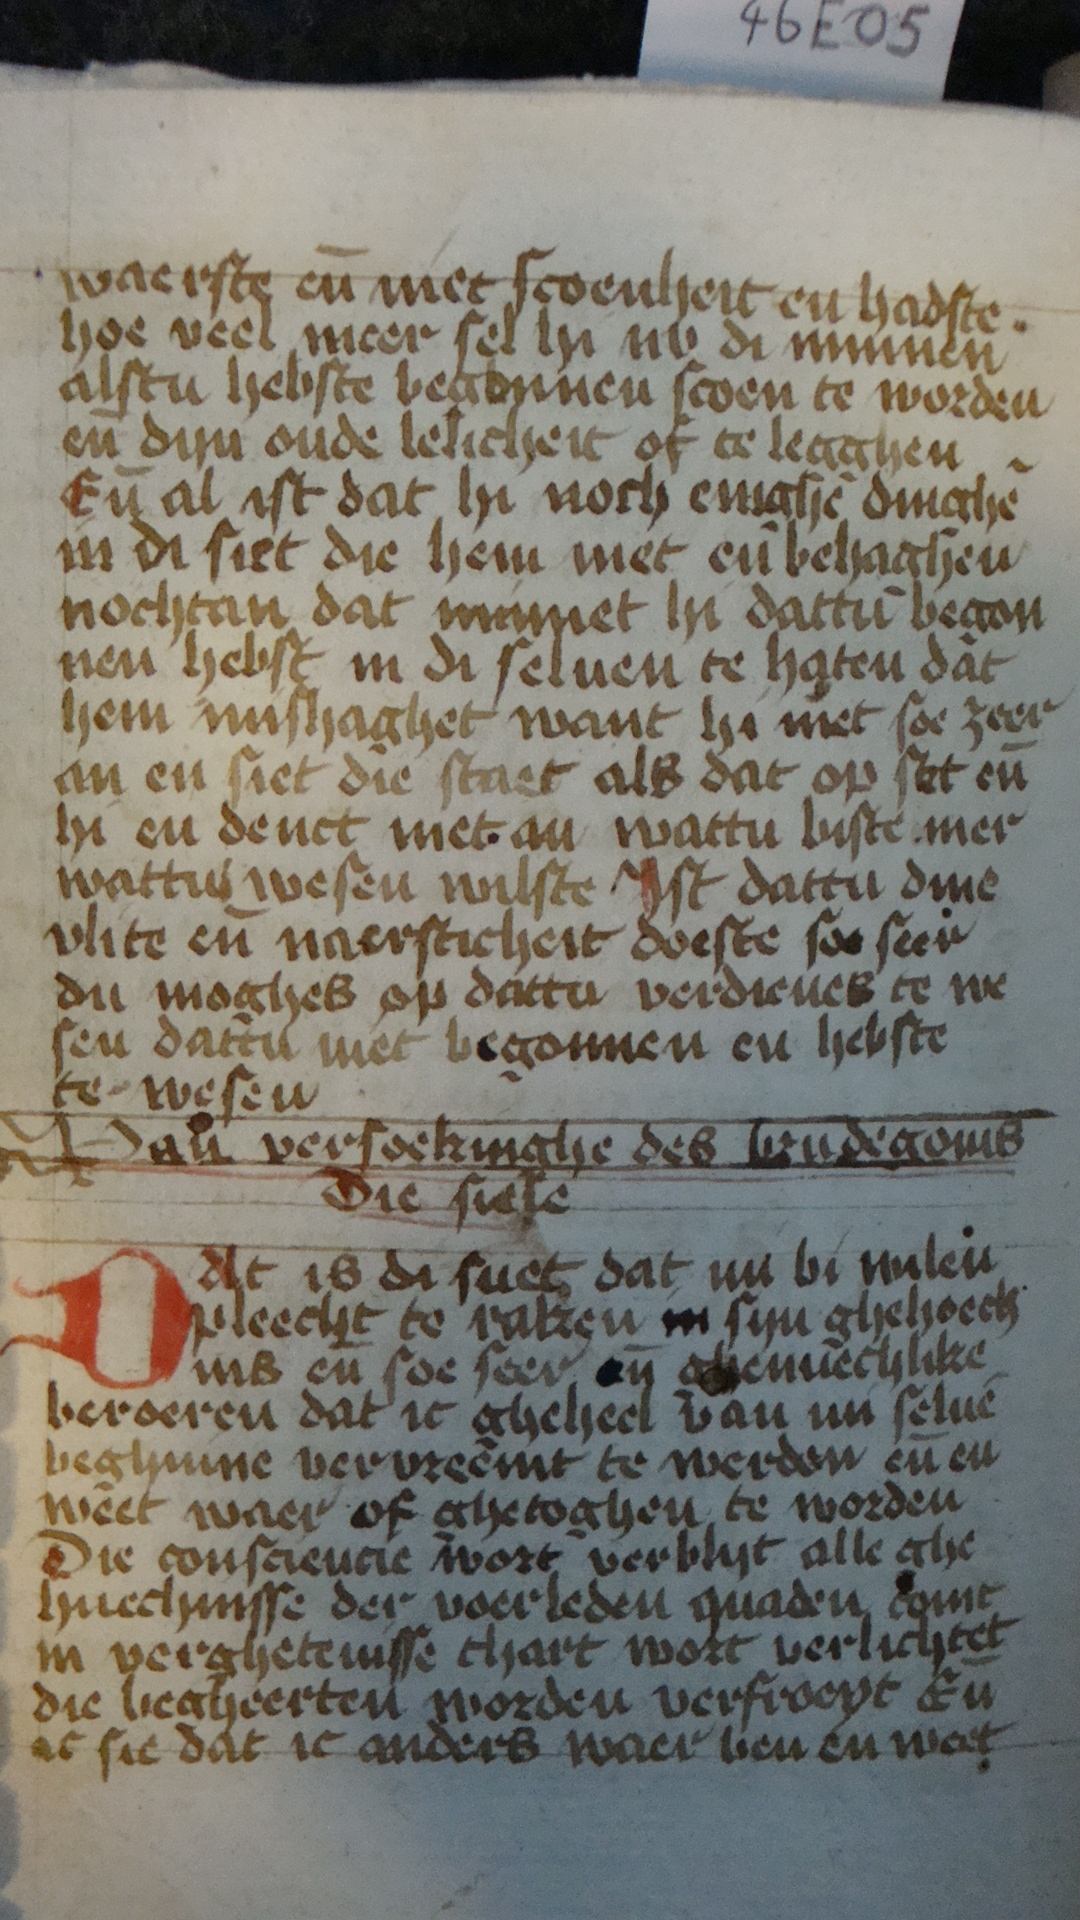 46E05
waerste eñ niet scoenheit en hadste .
hoe veel meer sel hi nv di minnen
alstu hebste begonnen scoen te worden
eñ dijn oude lelicheit of te legghen
Eñ al ist dat hi noch enighē dinghē
in di siet die hem niet en behaghen
nochtan dat minnet hi dattu begon
nen hebst in di seluen te haten dat
hem mishaghet want hi niet soe zeer
an en siet die staet als dat op set eñ
hi en denct niet an wattu biste mer
wattu wesen wilste Ist dattu dine
vlite eñ naersticheit doeste soe seer
du moghes op dattu verdienes te we
sen dattu niet begonnen en hebste
te wesen
Van versoekinghe des brudegoms
Die siele
Dat is di suet dat mi bi wilen
pleecht te raken in sijn ghehoech
nis eñ soe seer eñ ghenuechlike
beroeren dat ic gheheel van mi seluē
beghinne vervreemt te werden eñ en
weet waer of ghetoghen te worden
Die consciencie wort verblijt alle ghe
huechnisse der voerleden quaden comt
in verghetenisse thart wort verlichtet
die begheerten worden verfroeyt Eñ
ic sie dat ic anders waer ben en weet